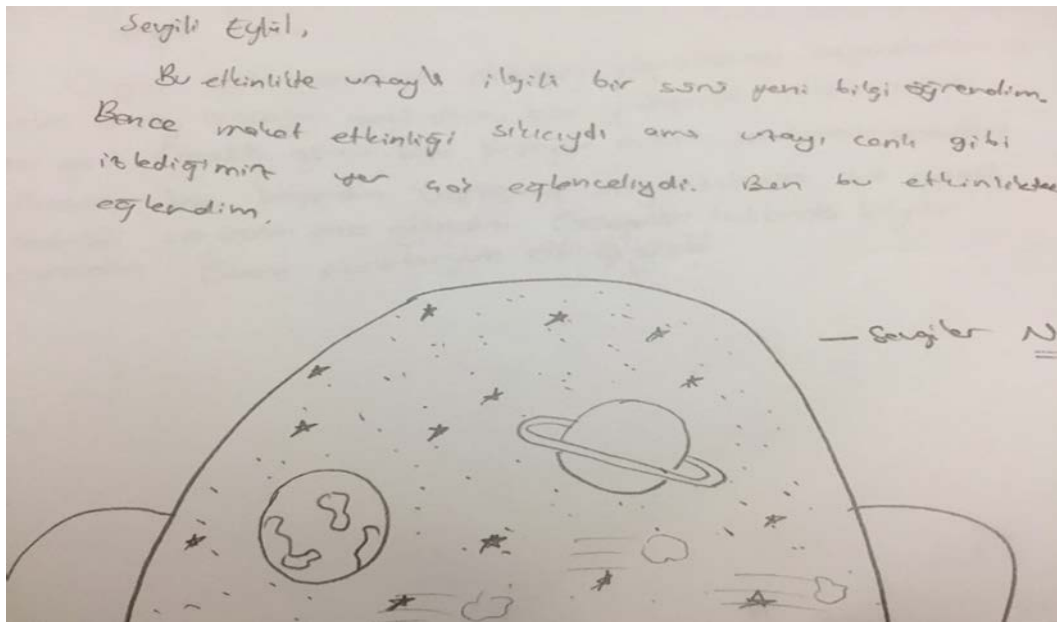 Sevgili Eylül,
Bu etkinlikte uzayla ilgili bir sürü yeni bilgi öğrendim.
Bence maket etkinliği sıkıcıydı ama uzayı canlı gibi
izlediğimiz yer çok eğlenceliydi. Ben bu etkinlikten
eğlendim.
— Sevgiler N